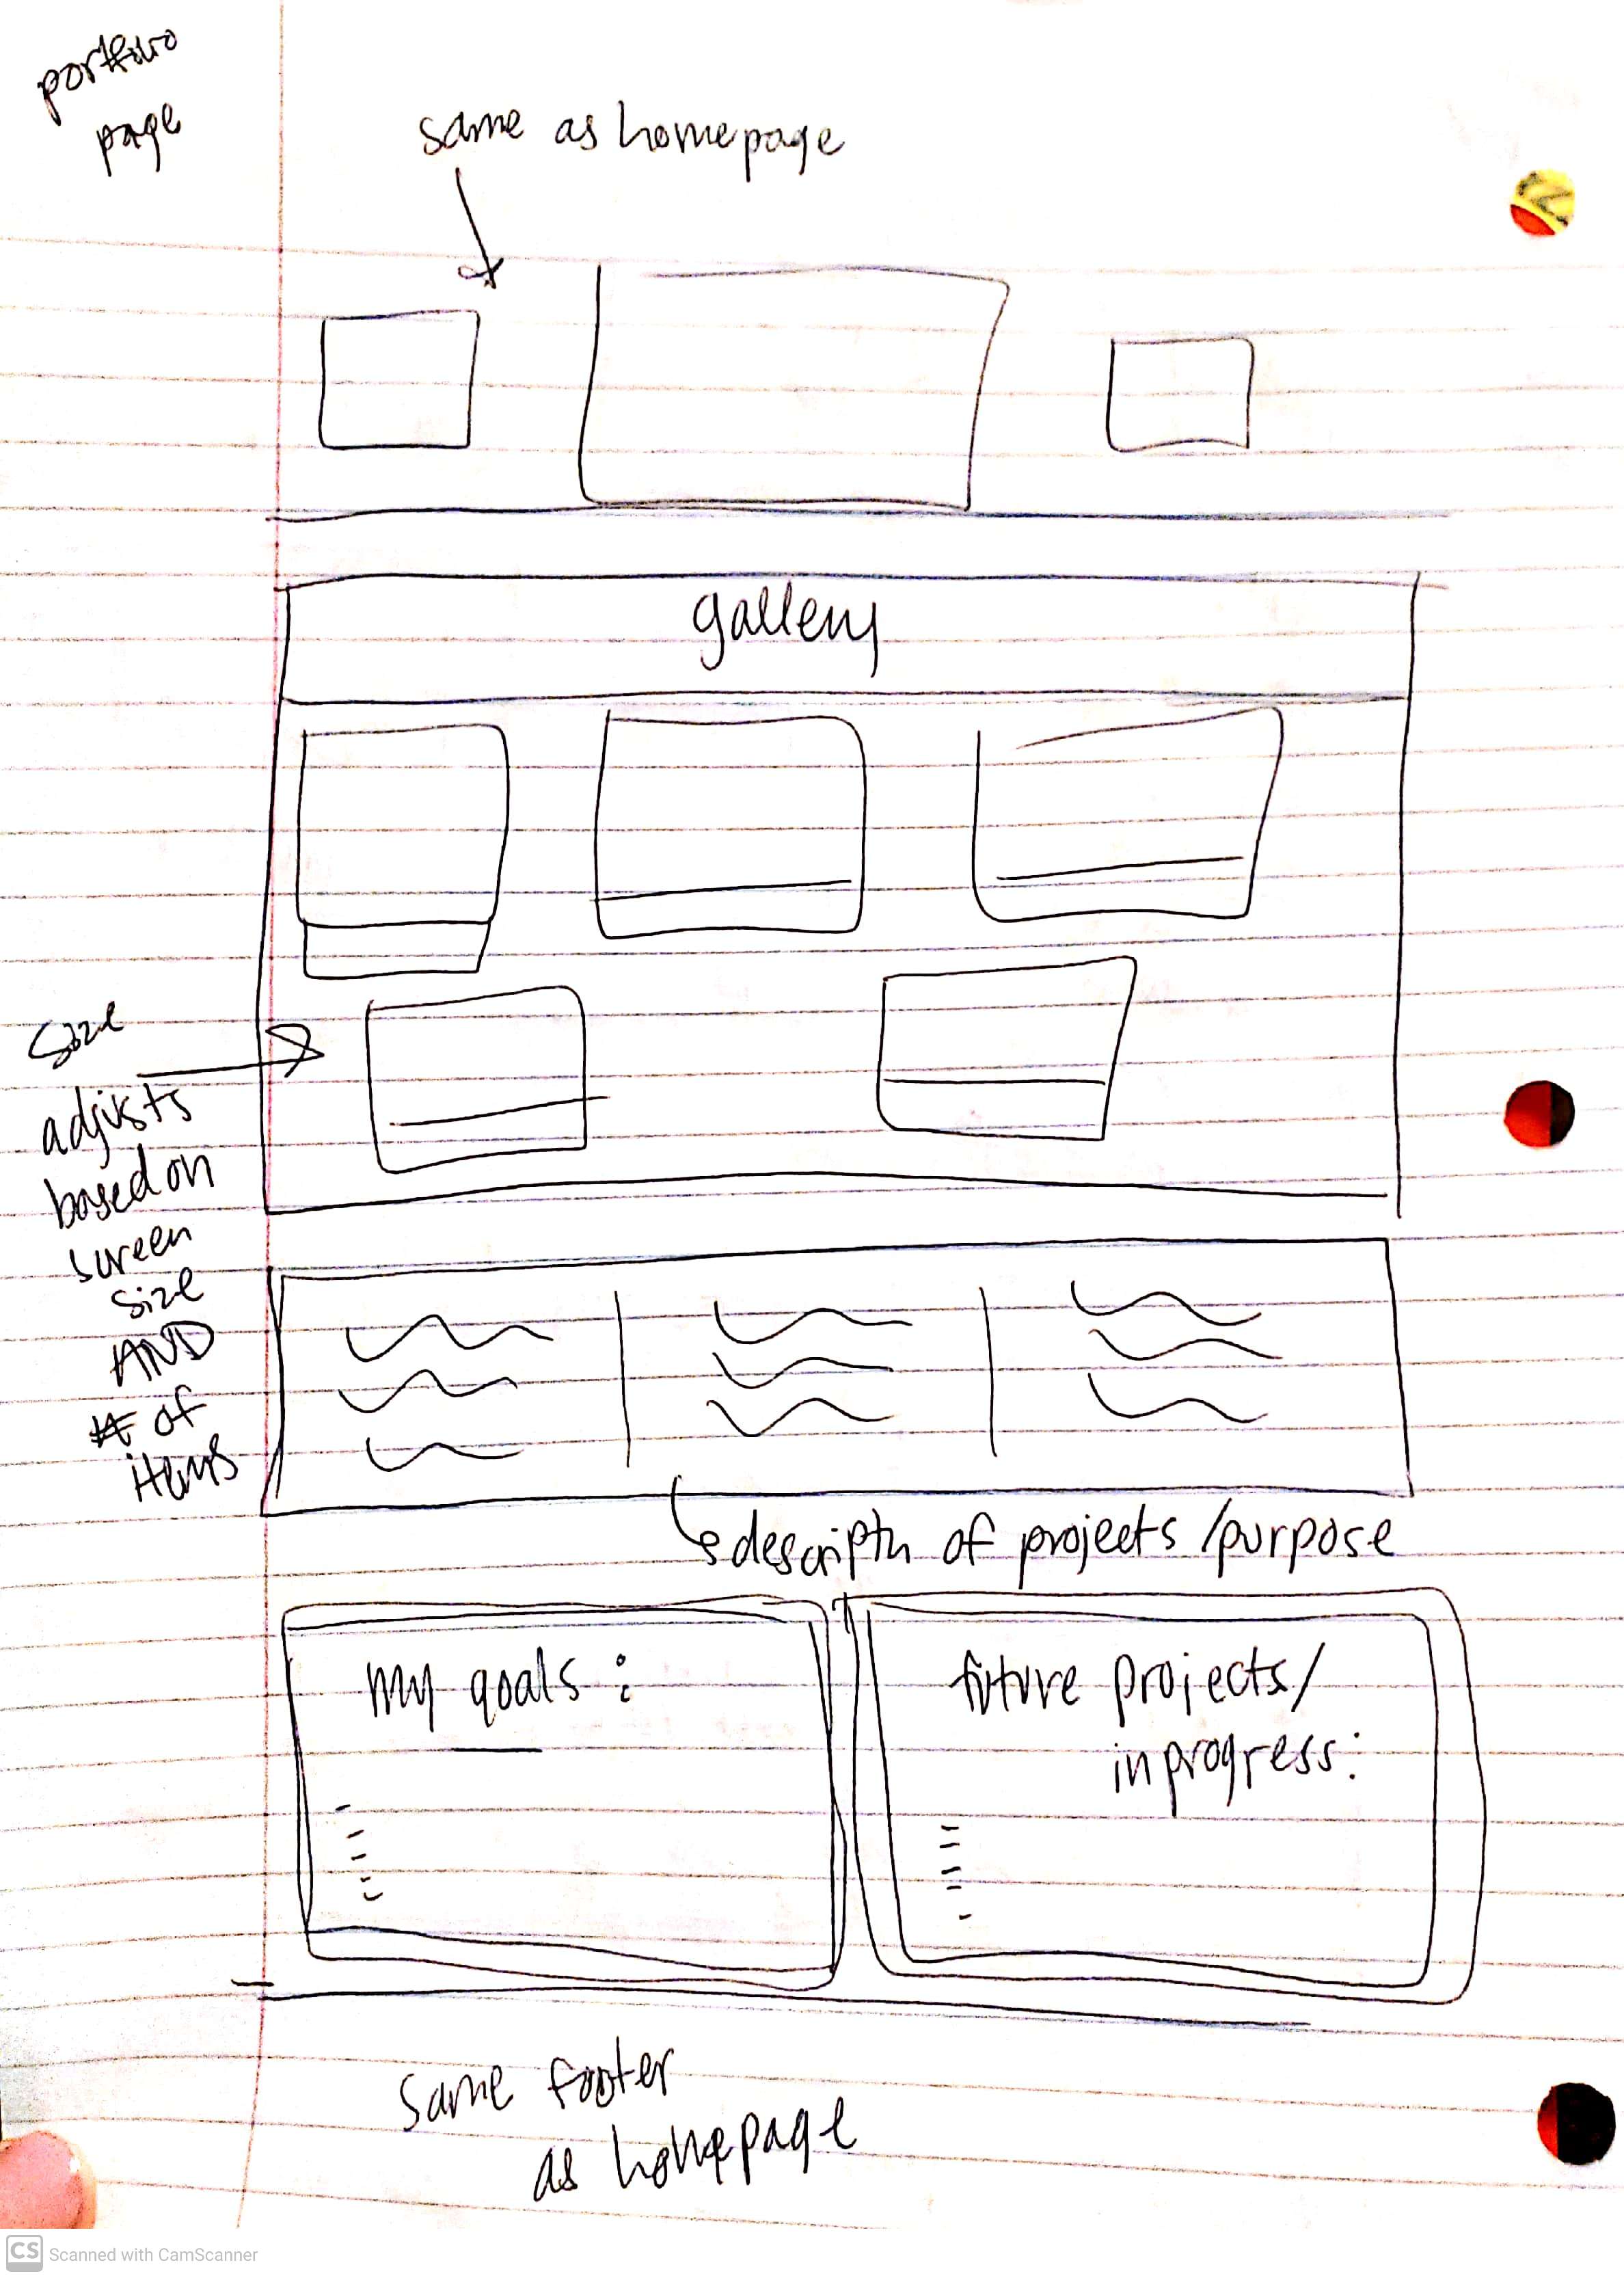 portfolio
page
same as homepage
gallery
Size
adjusts
based on
screen
size
AND
# of
items
descriptn of projects /purpose
my goals :
future projects/
in progress:
same footer
as homepage
CS Scanned with CamScanner